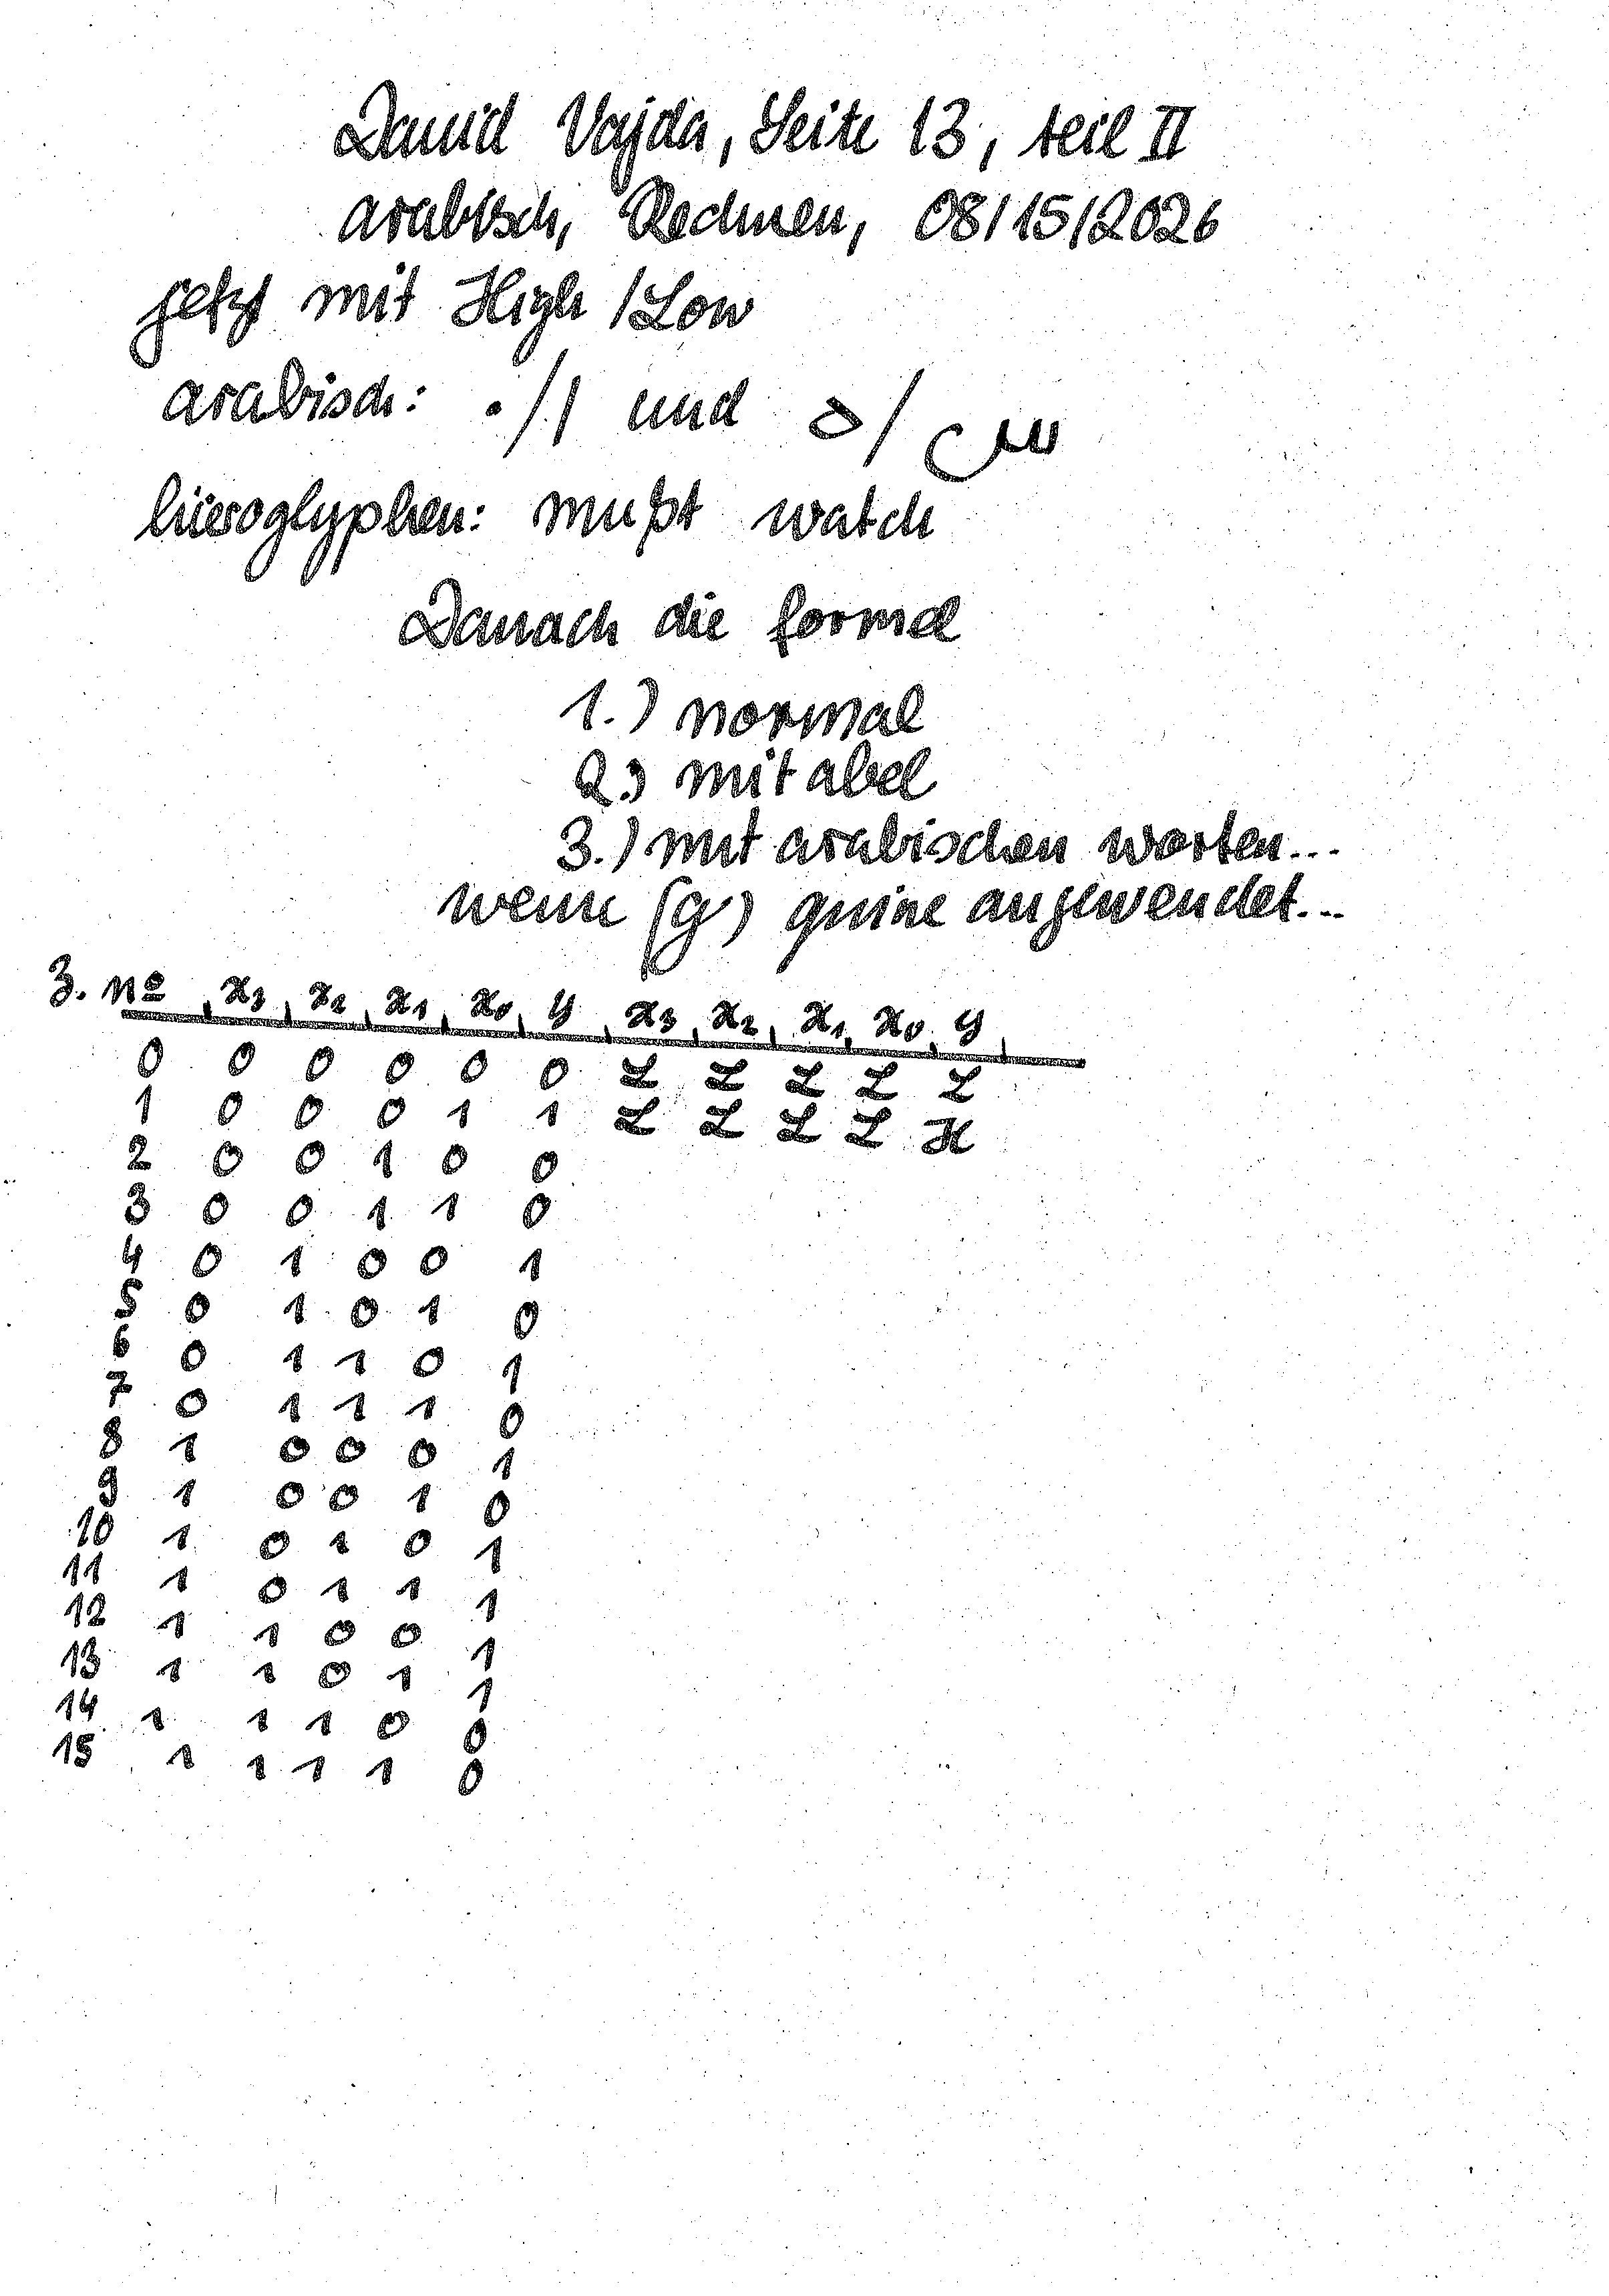 David Vajda, Seite 13, teil II
arabisch, Rechnen, 08/15/2026
jetzt mit High /Low
arabisch: ٠/١ und ه/س
hieroglyphen: mußt watch
Danach die formel
1.) normal
2.) mit abel
3.) mit arabischen worten...
wenn (g) quine angewendet...
3. No x3 x2 x1 x0 y x3 x2 x1 x0 y
0 0 0 0 0 0 L L L L L
1 0 0 0 1 1 L L L L H
2 0 0 1 0 0
3 0 0 1 1 0
4 0 1 0 0 1
5 0 1 0 1 0
6 0 1 1 0 1
7 0 1 1 1 0
8 1 0 0 0 1
9 1 0 0 1 0
10 1 0 1 0 1
11 1 0 1 1 1
12 1 1 0 0 1
13 1 1 0 1 1
14 1 1 1 0 0
15 1 1 1 1 0